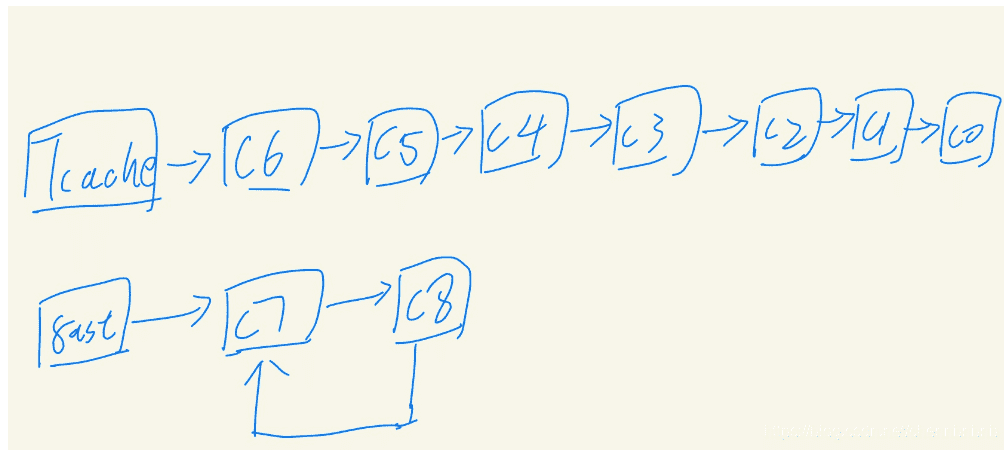 Tcache C6 C5 C4 C3 C2 C1 C0
fast C7 C8